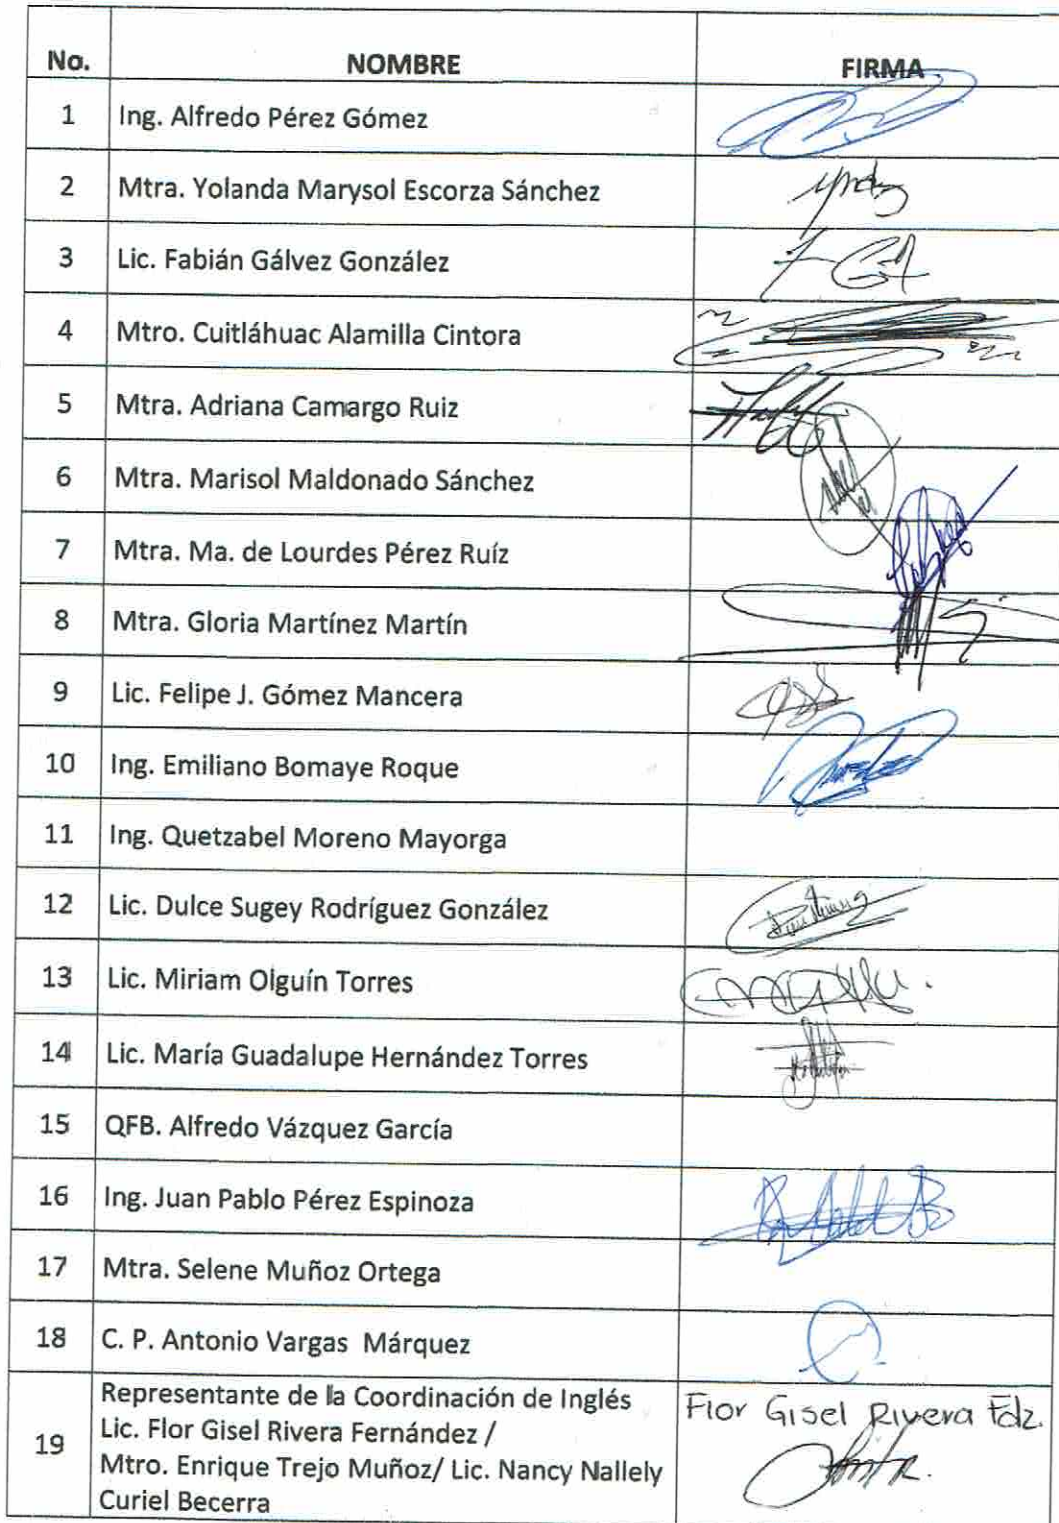 No. NOMBRE FIRMA
1 Ing. Alfredo Pérez Gómez
2 Mtra. Yolanda Marysol Escorza Sánchez
3 Lic. Fabián Gálvez González
4 Mtro. Cuitláhuac Alamilla Cintora
5 Mtra. Adriana Camargo Ruiz
6 Mtra. Marisol Maldonado Sánchez
7 Mtra. Ma. de Lourdes Pérez Ruíz
8 Mtra. Gloria Martínez Martín
9 Lic. Felipe J. Gómez Mancera
10 Ing. Emiliano Bomaye Roque
11 Ing. Quetzabel Moreno Mayorga
12 Lic. Dulce Sugey Rodríguez González
13 Lic. Miriam Olguín Torres
14 Lic. María Guadalupe Hernández Torres
15 QFB. Alfredo Vázquez García
16 Ing. Juan Pablo Pérez Espinoza
17 Mtra. Selene Muñoz Ortega
18 C. P. Antonio Vargas Márquez
19 Representante de la Coordinación de Inglés
Lic. Flor Gisel Rivera Fernández /
Mtro. Enrique Trejo Muñoz/ Lic. Nancy Nallely
Curiel Becerra
Flor Gisel Rivera Fdz.